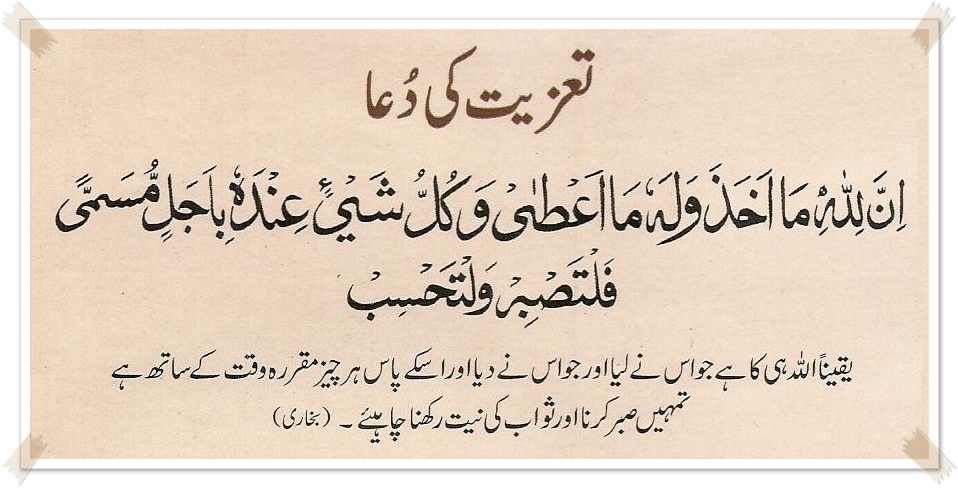 تعزیت کی دُعا
اِنَّ لِلّٰہِ مَا اَخَذَ وَلَہٗ مَا اَعْطٰی وَ کُلُّ شَیْءٍ عِنْدَہٗ بِاَجَلٍ مُّسَمًّی
فَلْتَصْبِرْ وَلْتَحْسِبْ
یقیناً اللہ ہی کا ہے جو اس نے لیا اور جو اس نے دیا اور اسکے پاس ہر چیز مقررہ وقت کے ساتھ ہے
تمہیں صبر کرنا اور ثواب کی نیت رکھنا چاہیئے ۔ (بخاری)